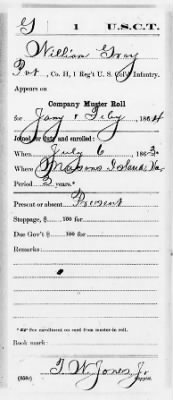 G 1 U.S.C.T.
William Gray
Pvt, Co. H, 1 Reg't U. S. Col'd Infantry.
Appears on
Company Muster Roll
for Jany & Feby, 1864
Joined for duty and enrolled:
When July 6, 1863.
Where Masons Island, Va.
Period 3 years.*
Present or absent Present
Stoppage, $ 100 for
Due Gov't $ 100 for
Remarks:
* See enrollment on card from muster-in roll.
Book mark:
T. W. Jones, Jr.
(858c) Copyist.